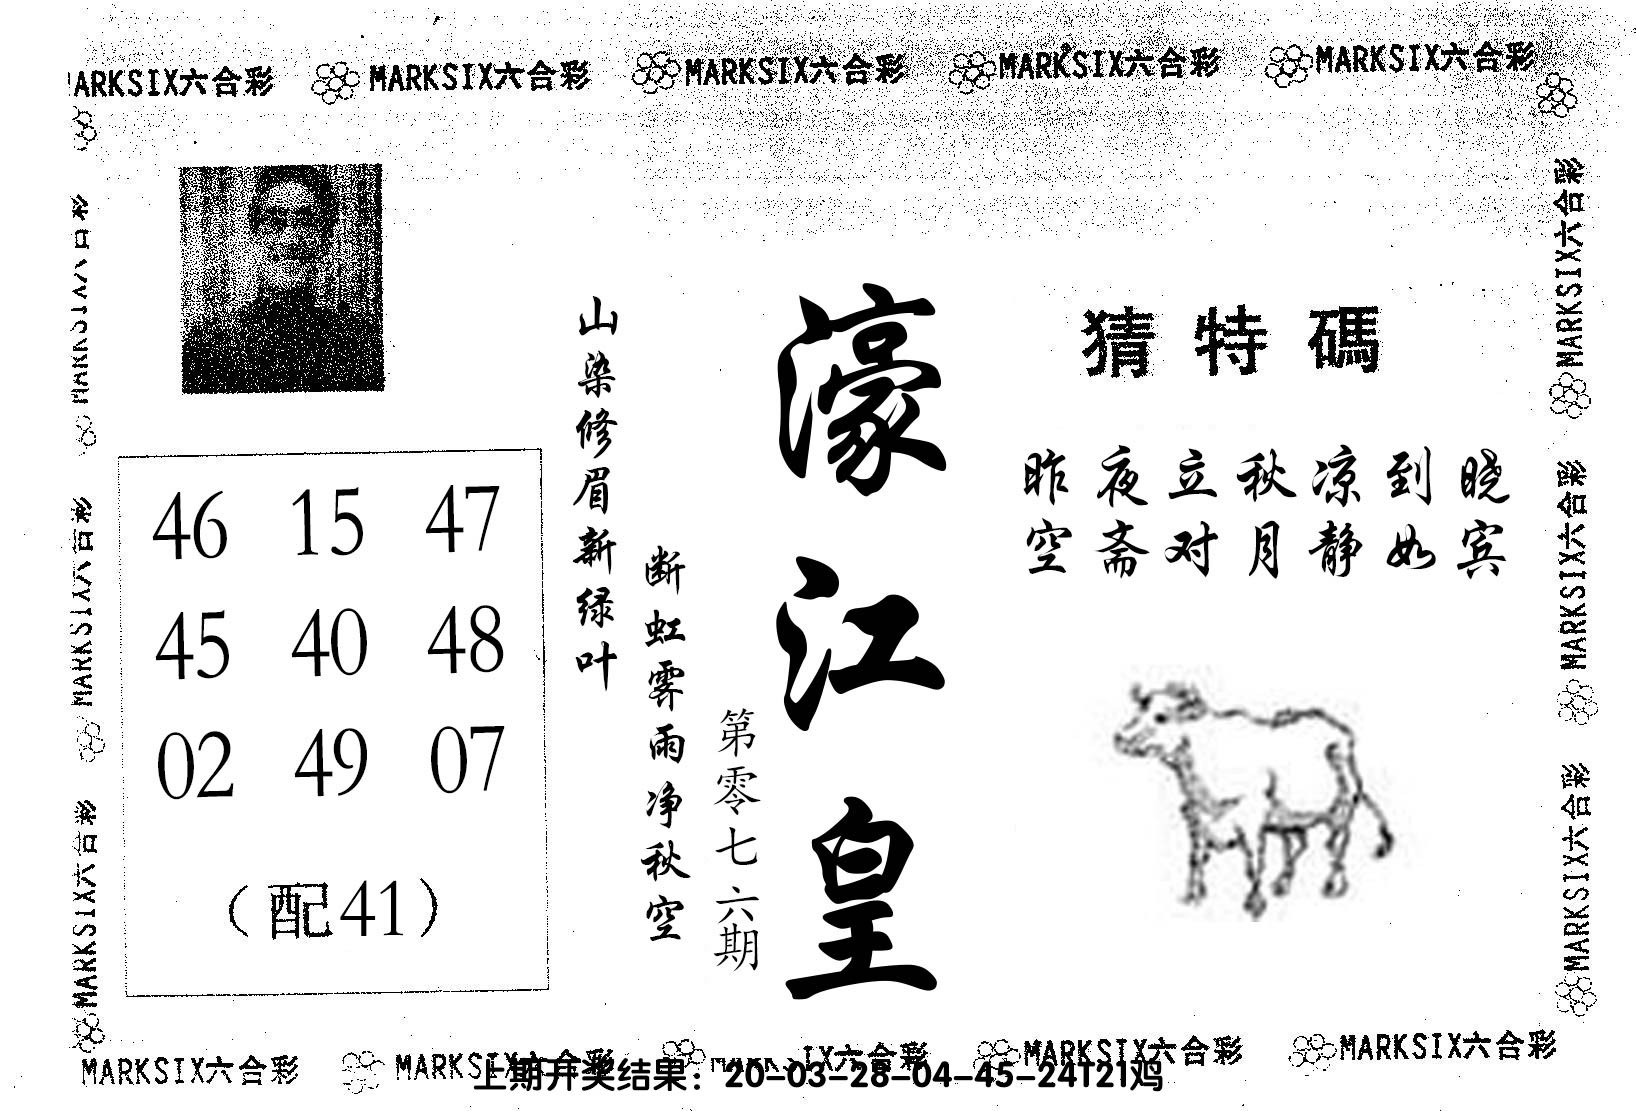 MARKSIX六合彩 MARKSIX六合彩 MARKSIX六合彩 MARKSIX六合彩
猜特碼
昨夜立秋凉到晓
空斋对月静如宾
濠江皇
第零七六期
山染修眉新绿叶
断虹霁雨净秋空
46 15 47
45 40 48
02 49 07
（配41）
MARKSIX六合彩
MARKSIX六合彩
MARKSIX六合彩
MARKSIX六合彩
MARKSIX六合彩
MARKSIX六合彩 MARKSIX六合彩 MARKSIX六合彩 MARKSIX六合彩
上期开奖结果：20-03-28-04-45-24T21鸡